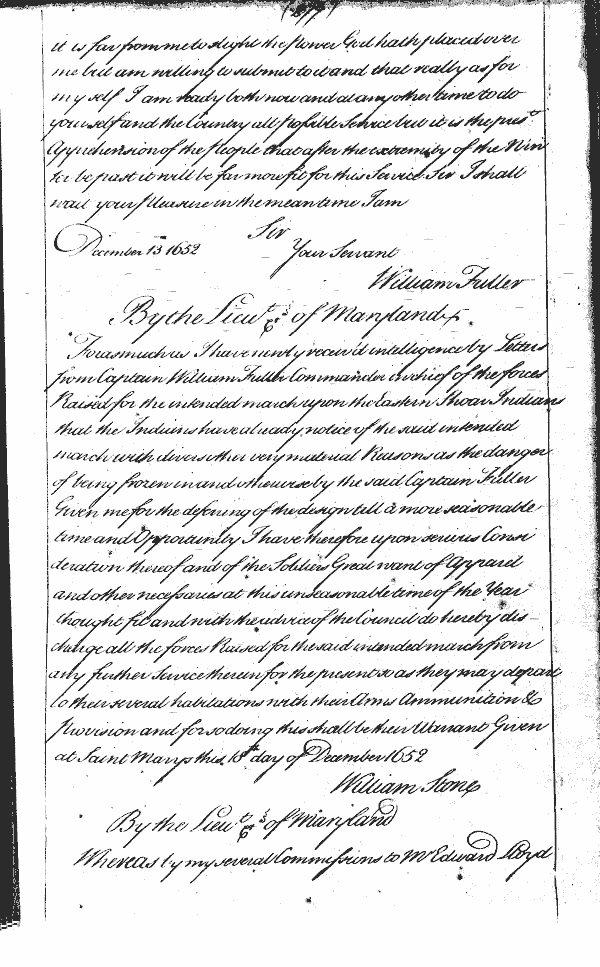 (277)
it is far from me to slight the power God hath placed over
me but am willing to submit to it and that really as for
my self I am ready both now and at any other time to do
yourself and the Country all possible Service but it is the pres.t
Apprehension of the people that after the extremity of the Win
ter be past it will be far more fit for this Service Sir I shall
wait your pleasure in the mean time I am
Sir
December 13 1652
Your Servant
William Fuller
By the Lieu.t &c of Maryland
Forasmuch as I have newly receiv'd intelligence by Letters
from Captain William Fuller Commander in chief of the forces
Raised for the intended march upon the Eastern Shoar Indians
that the Indians have already notice of the said intended
march with divers other very material Reasons as the danger
of being frozen in and otherwise by the said Captain Fuller
Given me for the defering of the design till a more seasonable
time and Opportunity I have therefore upon serious Consi
deration thereof and of the Soldiers Great want of Apparel
and other necessaries at this unseasonable time of the Year
thought fit and with the advice of the Council do hereby dis
charge all the forces Raised for the said intended march from
any further Service therein for the present so as they may depart
to their several habitations with their Arms Ammunition &
provision and for so doing this shall be their Warrant Given
at Saint Marys this 18th day of December 1652
William Stone
By the Lieu.t &c of Maryland
Whereas by my several Commissions to Mr Edward Lloyd